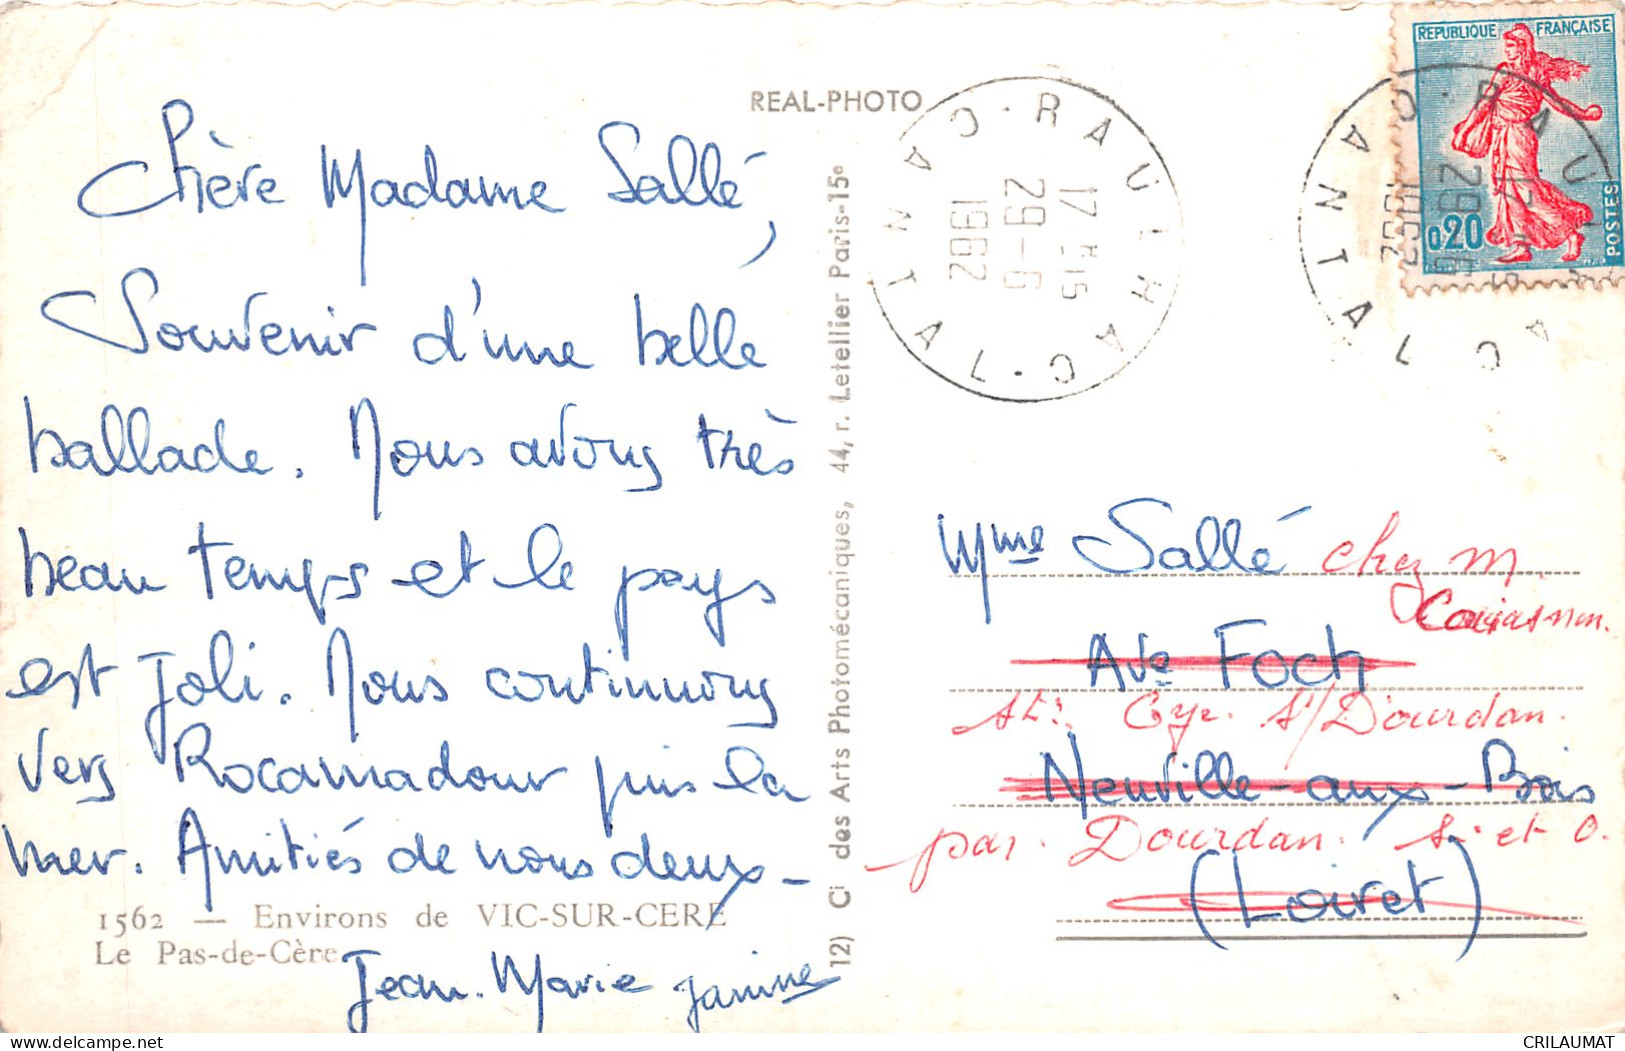 REAL-PHOTO
Chère Madame Sallé,
Souvenir d'une belle
ballade. Nous avons très
beau temps et le pays
est joli. Nous continuons
vers Rocamadour puis la
mer. Amitiés de nous deux -
Jean-Marie Janine
1562 — Environs de VIC-SUR-CERE
Le Pas-de-Cère
12) Ci des Arts Photomécaniques, 44, r. Letellier Paris-15e
RAULHAC · CANTAL ·
17 H 15
29-6
1962
REPUBLIQUE FRANÇAISE
0,20
POSTES
RAULHAC CANTAL
17 H 15
29-6
1962
Mme Sallé chez M.
Ave Foch
St. Cyr. s/ Dourdan.
Neuville-aux-Bois
par Dourdan. S. et O.
(Loiret)
delcampe.net
CRILAUMAT